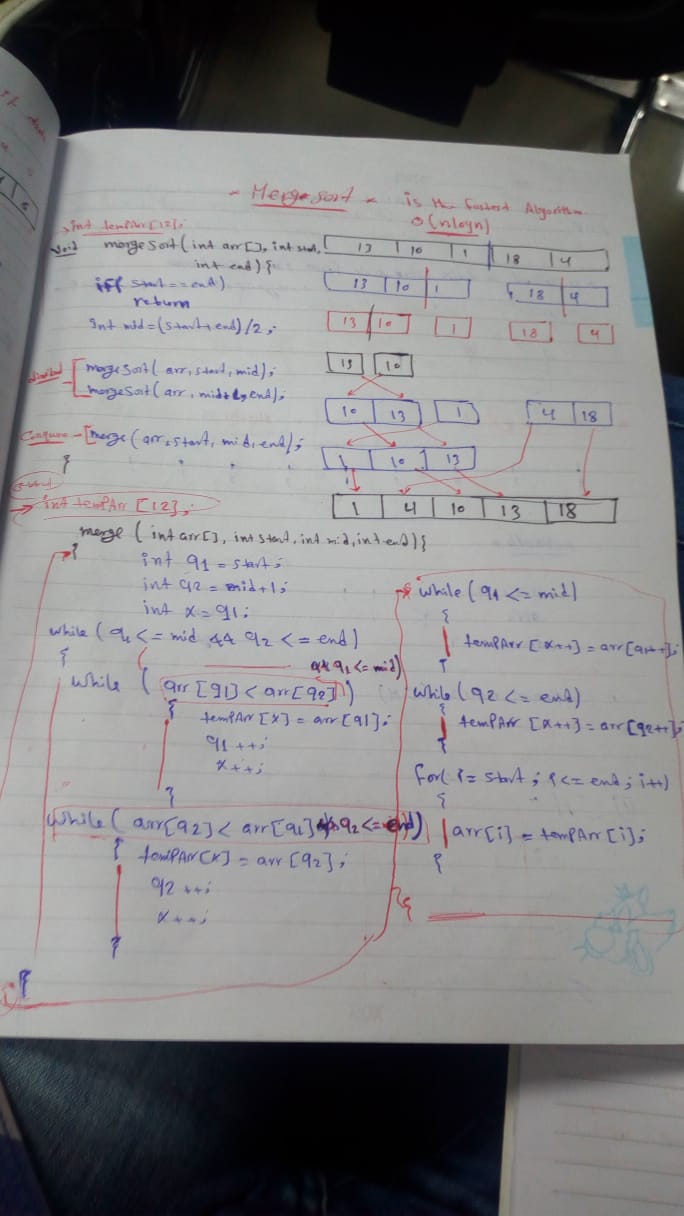 - Merge sort - is the fastest Algorithm
O(nlogn)
int tempArr[12];
void mergesort(int arr[], int start, int end){
13 10 1 18 4
if( start == end)
return
13 10 1 18 4
int mid=(start+end)/2;
13 10 1 18 4
13 10
mergesort( arr, start, mid);
mergesort( arr, mid+1, end);
10 13 1 4 18
Conquer - [merge (arr, start, mid, end);
}
1 10 13
int tempArr [12];
1 4 10 13 18
merge (int arr[], int start, int mid, int end){
int q1 = start;
int q2 = mid+1;
int x = q1;
while( q1 <= mid && q2 <= end)
{
while ( arr[q1] < arr[q2] && q1 <= mid)
{
tempArr [x] = arr[q1];
q1 ++;
x++;
}
while( arr[q2] < arr[q1] && q2 <= end)
{
tempArr[x] = arr[q2];
q2 ++;
x++;
}
}
while( q1 <= mid)
{
tempArr [x++] = arr[q1++];
}
while( q2 <= end)
{
tempArr [x++] = arr[q2++];
}
for( i= start ; i <= end ; i++)
{
arr[i] = tempArr [i];
}